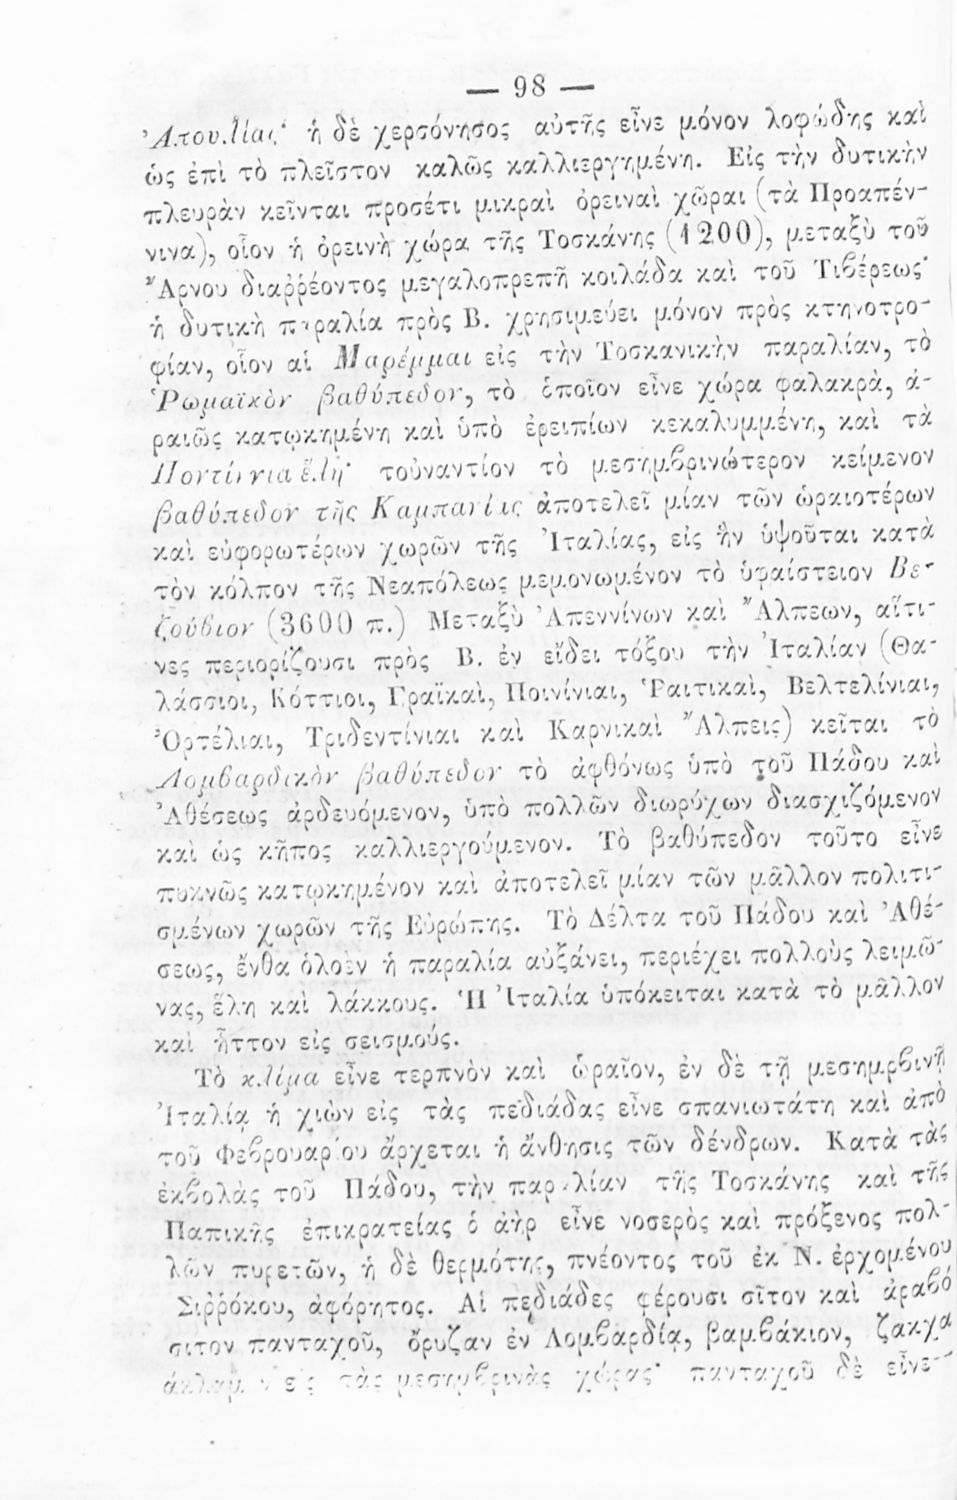 — 98 —
Ἀπουλίας· ἡ δὲ χερσόνησος αὐτῆς εἶνε μόνον λοφώδης καὶ
ὡς ἐπὶ τὸ πλεῖστον καλῶς καλλιεργημένη. Εἰς τὴν δυτικὴν
πλευρὰν κεῖνται προσέτι μικραὶ ὀρειναὶ χῶραι (τὰ Προαπέν-
νινα), οἷον ἡ ὀρεινὴ χώρα τῆς Τοσκάνης (1200), μεταξὺ τοῦ
Ἄρνου διαῤῥέοντος μεγαλοπρεπῆ κοιλάδα καὶ τοῦ Τιβέρεως·
ἡ δυτικὴ παραλία πρὸς Β. χρησιμεύει μόνον πρὸς κτηνοτρο-
φίαν, οἷον αἱ Μαρέμμαι εἰς τὴν Τοσκανικὴν παραλίαν, τὸ
Ῥωμαϊκὸν βαθύπεδον, τὸ ὁποῖον εἶνε χώρα φαλακρὰ, ἀ-
ραιῶς κατῳκημένη καὶ ὑπὸ ἐρειπίων κεκαλυμμένη, καὶ τὰ
Ποντίννια ἕλη· τοὐναντίον τὸ μεσημβρινώτερον κείμενον
βαθύπεδον τῆς Καμπανίας ἀποτελεῖ μίαν τῶν ὡραιοτέρων
καὶ εὐφορωτέρων χωρῶν τῆς Ἰταλίας, εἰς ἣν ὑψοῦται κατὰ
τὸν κόλπον τῆς Νεαπόλεως μεμονωμένον τὸ ὑφαίστειον Βε-
ζούβιον (3600 π.) Μεταξὺ Ἀπεννίνων καὶ Ἄλπεων, αἵτι-
νες περιορίζουσι πρὸς Β. ἐν εἴδει τόξου τὴν Ἰταλίαν (Θα-
λάσσιοι, Κόττιοι, Γραῖκαὶ, Ποινίνιαι, Ῥαιτικαὶ, Βελτελίνιαι,
Ὀρτέλιαι, Τριδεντίνιαι καὶ Καρνικαὶ Ἄλπεις) κεῖται τὸ
Λομβαρδικὸν βαθύπεδον τὸ ἀφθόνως ὑπὸ τοῦ Πάδου καὶ
Ἀθέσεως ἀρδευόμενον, ὑπὸ πολλῶν διωρύχων διασχιζόμενον
καὶ ὡς κῆπος καλλιεργούμενον. Τὸ βαθύπεδον τοῦτο εἶνε
πυκνῶς κατῳκημένον καὶ ἀποτελεῖ μίαν τῶν μᾶλλον πολιτι-
σμένων χωρῶν τῆς Εὐρώπης. Τὸ Δέλτα τοῦ Πάδου καὶ Ἀθέ-
σεως, ἔνθα ὁλοὲν ἡ παραλία αὐξάνει, περιέχει πολλοὺς λειμῶ-
νας, ἕλη καὶ λάκκους. Ἡ Ἰταλία ὑπόκειται κατὰ τὸ μᾶλλον
καὶ ἧττον εἰς σεισμούς.
Τὸ κλίμα εἶνε τερπνὸν καὶ ὡραῖον, ἐν δὲ τῇ μεσημρβινῇ
Ἰταλίᾳ ἡ χιὼν εἰς τὰς πεδιάδας εἶνε σπανιωτάτη καὶ ἀπὸ
τοῦ Φεβρουαρίου ἄρχεται ἡ ἄνθησις τῶν δένδρων. Κατὰ τὰς
ἐκβολὰς τοῦ Πάδου, τὴν παραλίαν τῆς Τοσκάνης καὶ τῆς
Παπικῆς ἐπικρατείας ὁ ἀὴρ εἶνε νοσερὸς καὶ πρόξενος πολ-
λῶν πυρετῶν, ἡ δὲ θερμότης, πνέοντος τοῦ ἐκ Ν. ἐρχομένου
Σιῤῥόκου, ἀφόρητος. Αἱ πεδιάδες φέρουσι σῖτον καὶ ἀραβό
σιτον πανταχοῦ, ὄρυζαν ἐν Λομβαρδίᾳ, βαμβάκιον, ζακχα
εἰς τὰς μεσημβρινὰς χώρας· πανταχοῦ δὲ εἶνε-